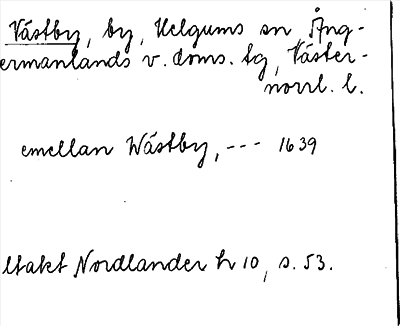 Västby, by, Helgums sn, Ång-
ermanlands v. doms. tg, Väster-
norrl. l.
emellan Wästby, --- 1639
ltakt Nordlander h 10, s. 53.